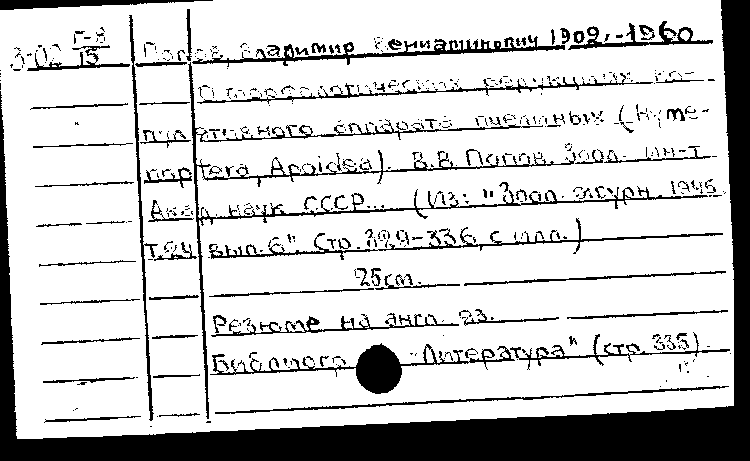 З-02 Г-8/15 Попов, Владимир Вениаминович 1902.-1960
О морфологических редукциях ко-
пулятивного аппарата пчелиных (Hyme-
noptera, Apoidea). В.В. Попов. Зоол. ин-т
Акад. наук СССР... (Из: "Зоол. журн. 1945.
Т.24 вып. 6". Стр. 329-336, с илл.)
25см.
Резюме на англ. яз.
Библиогр "Литература" (стр. 335).